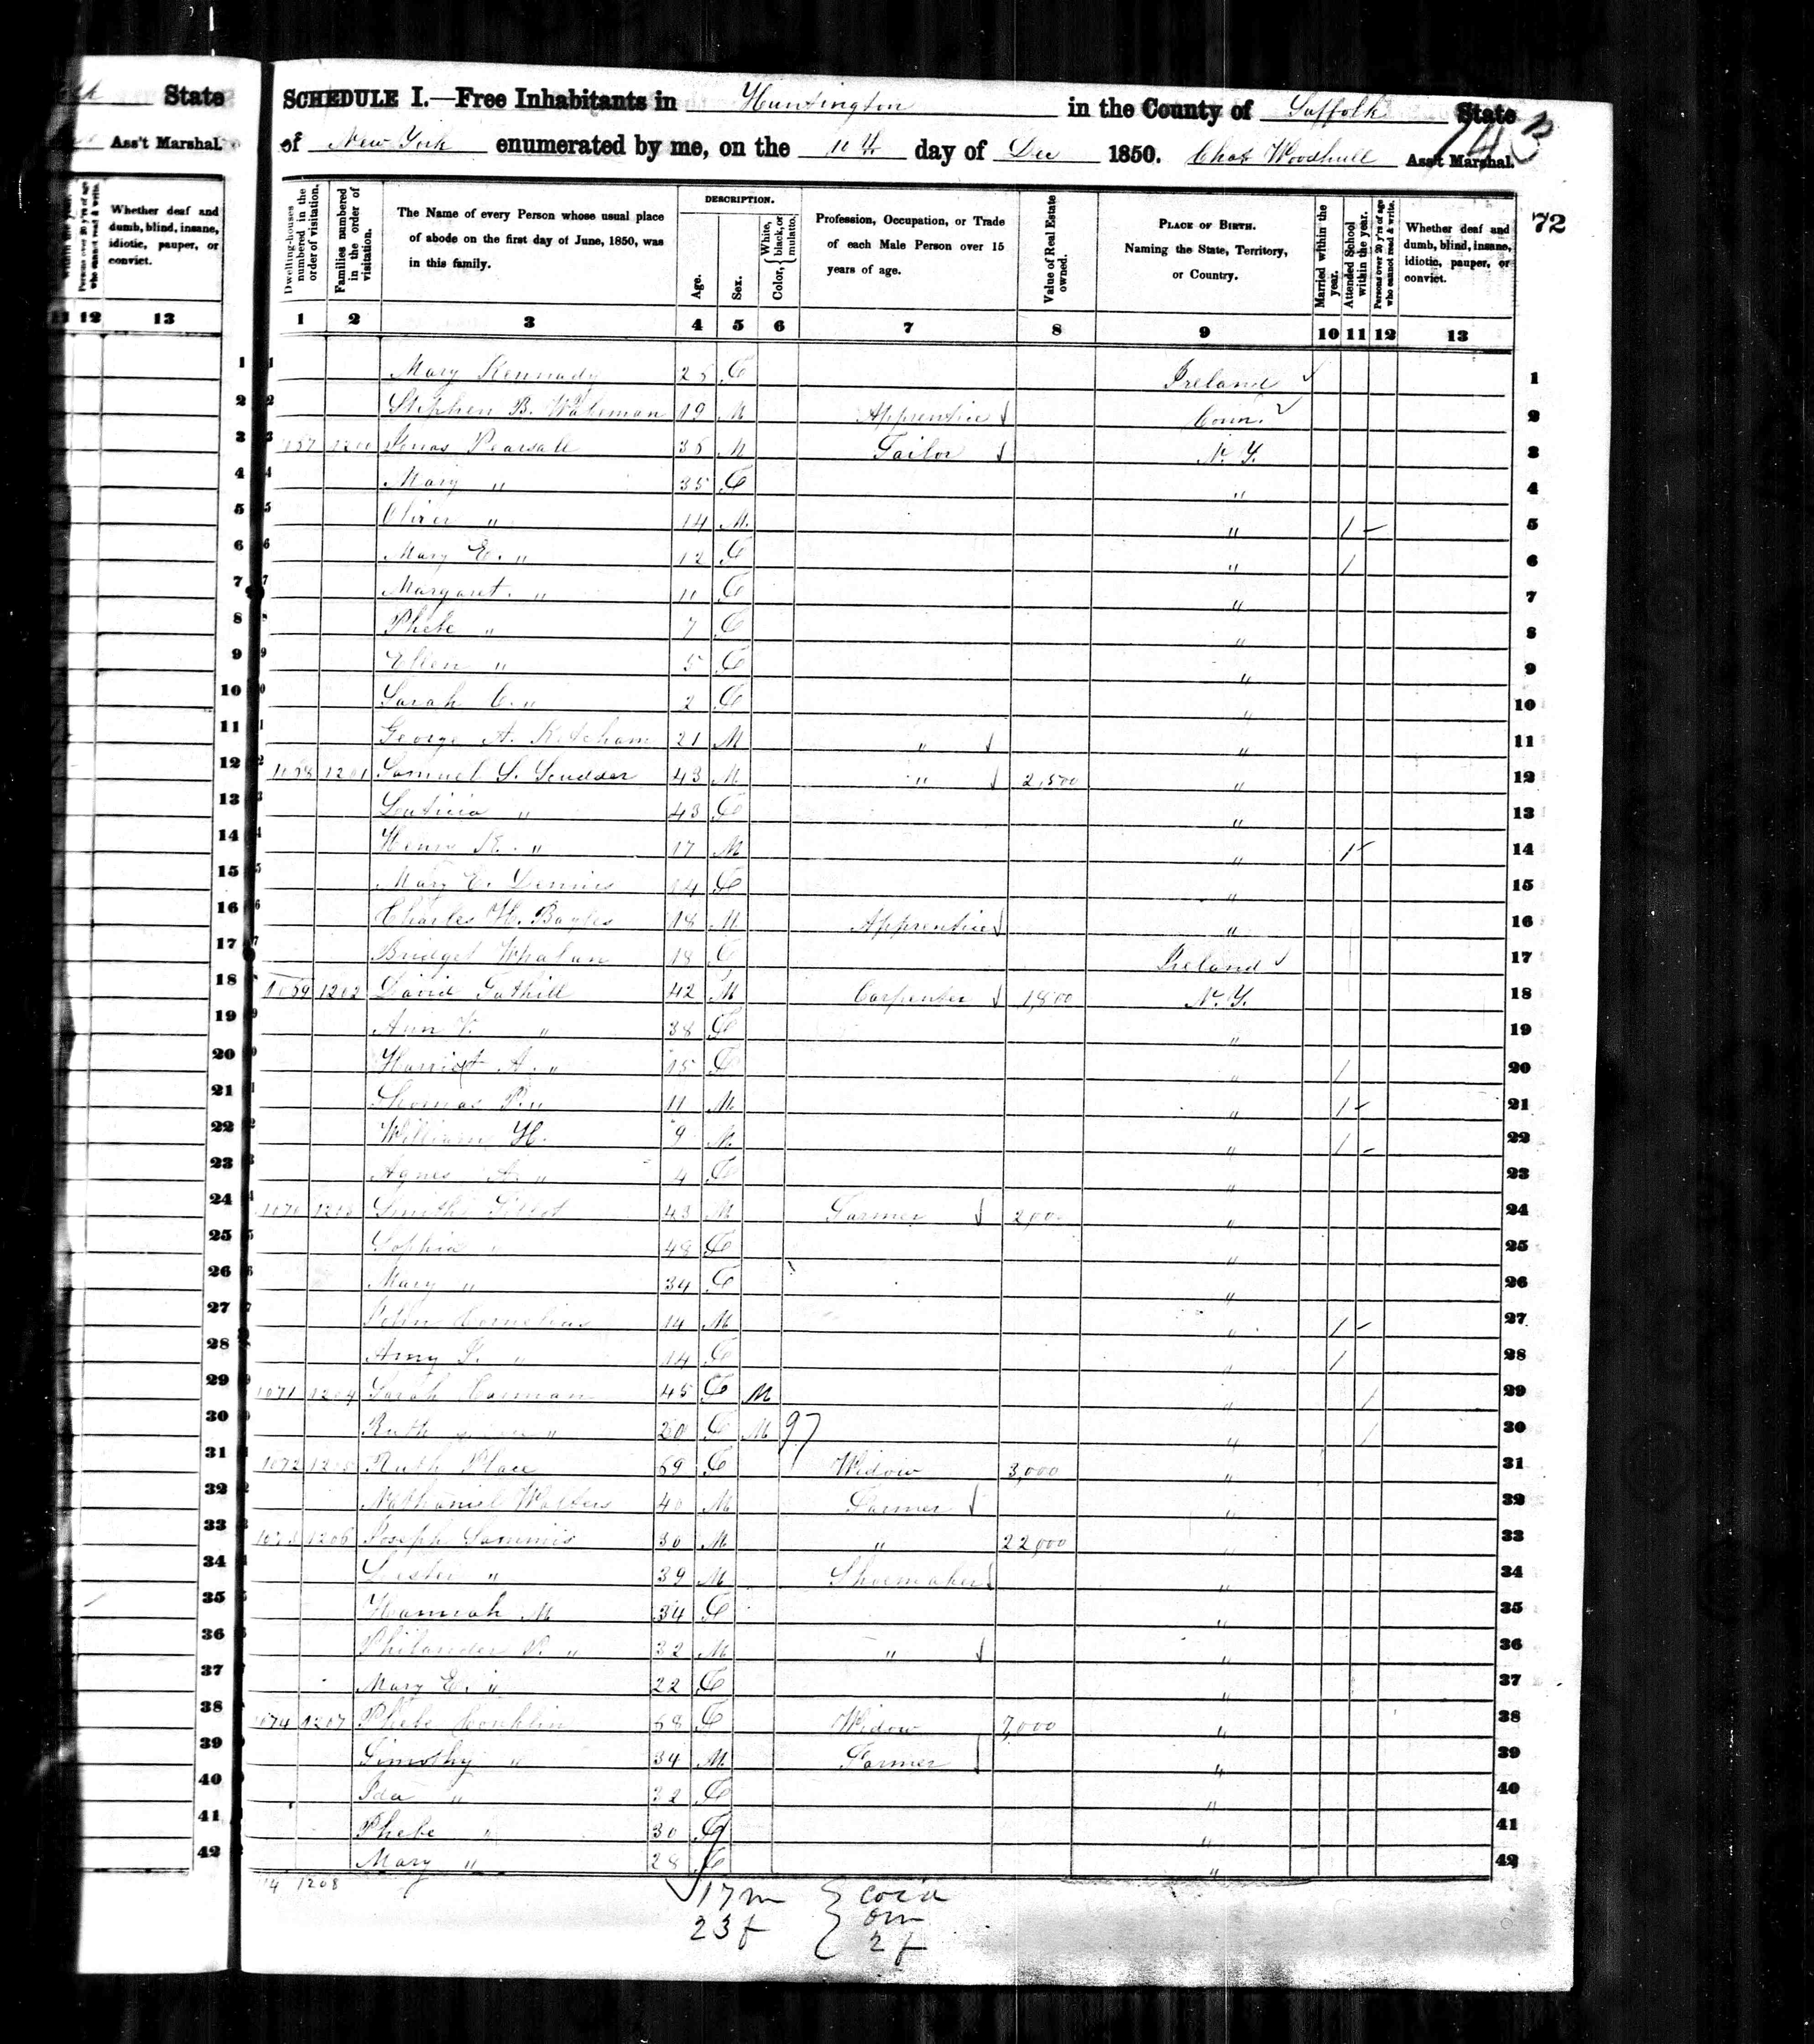 State
Ass't Marshal.
Persons over 20 y'rs of age who cannot read & write.
Whether deaf and dumb, blind, insane, idiotic, pauper, or convict.
11 12 13
SCHEDULE I.—Free Inhabitants in Huntington in the County of Suffolk State
of New York enumerated by me, on the day of Dec 1850. Chas Woodhull Ass't Marshal.
72
Dwelling-houses numbered in the order of visitation.
Families numbered in the order of visitation.
The Name of every Person whose usual place of abode on the first day of June, 1850, was in this family.
DESCRIPTION.
Age.
Sex.
Color, { White, black, or mulatto.
Profession, Occupation, or Trade of each Male Person over 15 years of age.
Value of Real Estate owned.
PLACE OF BIRTH. Naming the State, Territory, or Country.
Married within the year.
Attended School within the year.
Persons over 20 y'rs of age who cannot read & write.
Whether deaf and dumb, blind, insane, idiotic, pauper, or convict.
1 2 3 4 5 6 7 8 9 10 11 12 13
1 Mary Kennady 25 F Ireland 1
2 Stephen B. Wakeman 19 M Apprentice Conn. 2
3 Pearsall M Tailor N. Y. 3
4 Mary " 35 F " 4
5 Oliver " 14 M " 1 5
6 Mary E. " 12 F " 1 6
7 Margaret " 11 F " 7
8 Phebe " 7 F " 8
9 Ellen " 5 F " 9
10 Sarah C. " 2 F " 10
11 George A. Ketcham 21 M " " 11
12 1068 1201 Samuel S. Scudder 43 M " 2,500 " 12
13 " 43 F " 13
14 Henry " 17 M " 1 14
15 Mary E. 14 F " 15
16 Charles H. Bayles 18 M Apprentice " 16
17 Bridget Whalan 18 F Ireland 17
18 1069 1202 David Tuthill 42 M Carpenter 1,800 N. Y. 18
19 Ann " 38 F " 19
20 Harriet A. " 15 F " 1 20
21 Thomas P. " 11 M " 1 21
22 William H. 9 M " 1 22
23 Agnes A. " 4 F " 23
24 1070 1203 Smith 43 M Farmer 2,000 " 24
25 Sophia " 48 F " 25
26 Mary " 34 F " 26
27 John Cornelius 14 M " 1 27
28 Amy " 14 F " 1 28
29 1071 1204 Sarah Carman 45 F M " 1 29
30 Ruth " 20 F M 97 " 1 30
31 1072 1205 Ruth Place 69 F Widow 3,000 " 31
32 Nathaniel Walters 40 M Farmer " 32
33 1073 1206 Joseph Sammis 30 M " 22,000 " 33
34 " 39 M Shoemaker " 34
35 Hannah M 34 F " 35
36 Philander P. " 32 M " " 36
37 Mary E. " 22 F " 37
38 1074 1207 Phebe Conklin 68 F Widow 7,000 " 38
39 Timothy " 34 M Farmer " 39
40 Ida " 32 F " 40
41 Phebe " 30 F " 41
42 Mary " 28 F " 42
14 1208
17 m
23 f
om
2 f